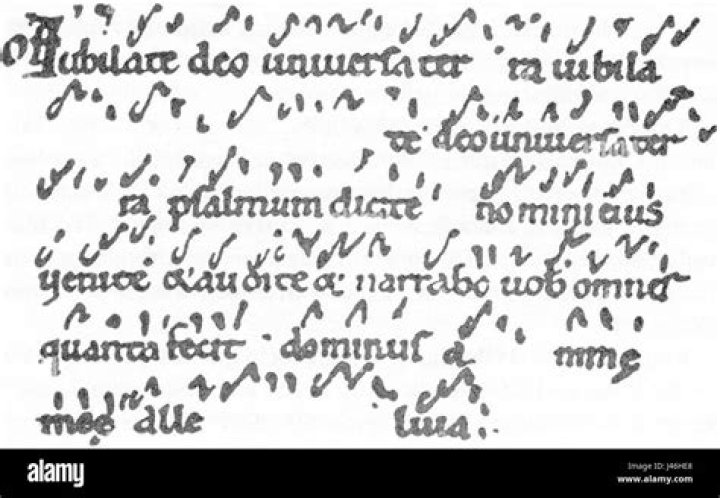 Of Iubilate deo uniuersa ter ra iubila
te deo uniuersa ter
ra psalmum dicite nomini eius
uenite & audite & narrabo uob omnes
quanta fecit dominus a nime
mee alle luia.
alamy
Image ID: J46HE8
www.alamy.com